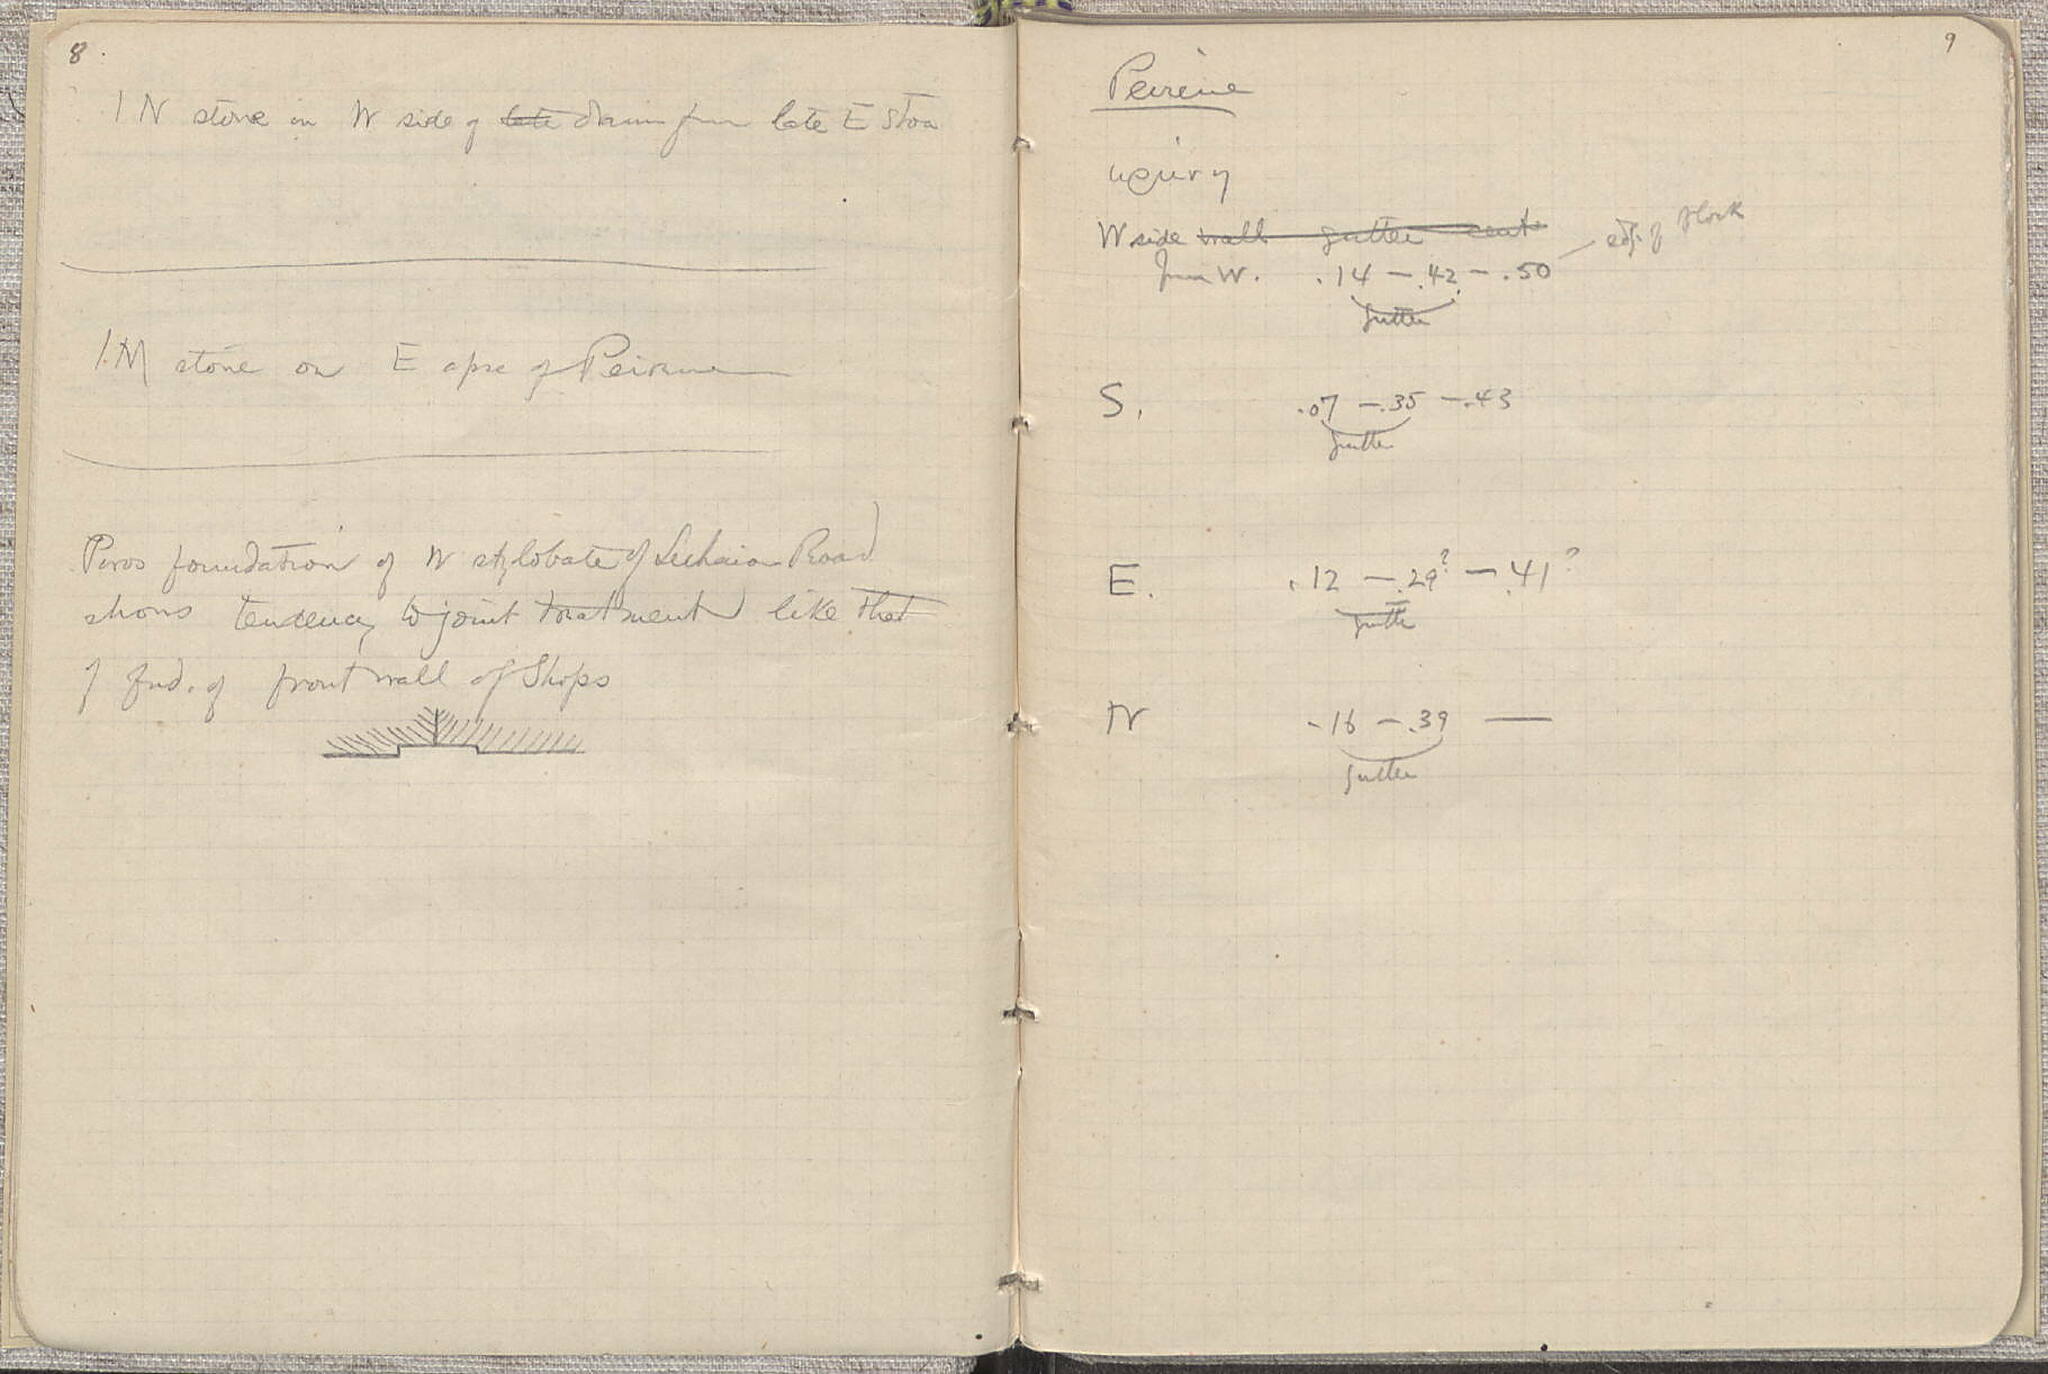 8.
1 N stone in W side of late drain from late E Stoa
1. M stone on E apse of Peirene
Poros foundation of W stylobate of Lechaion Road
shows tendency to joint treatment like that
of fnd. of front wall of Shops
9
Peirene
κρήνη
W side wall gutter cent.
edge of block
from W. .14 — .42 — .50
gutter
S. .07 — .35 — .43
gutter
E. .12 — .29? — .41?
gutter
N .16 — .39 —
gutter